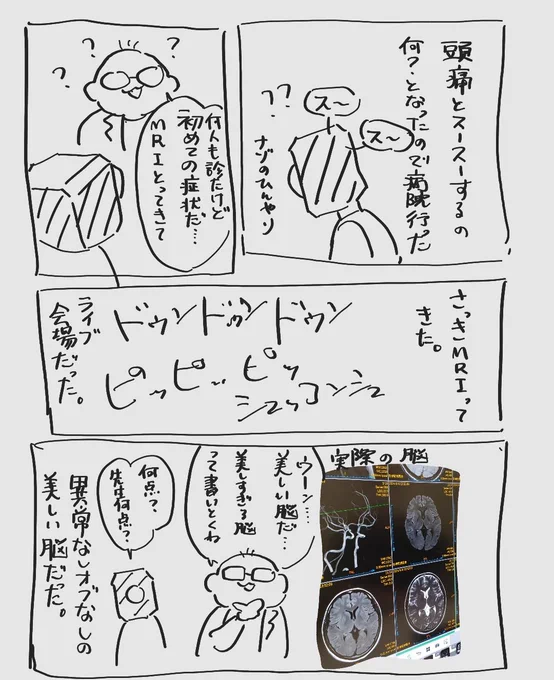 頭痛とスースーするの
何?となったので病院行った
ス～
スー
??
ナゾのひんやり
? ? ?
何人も診たけど
初めての症状だ…
MRIとってきて
さっきMRIって
きた。
ドゥンドゥンドゥン
ピッピッピッ
シュッコンシュ
ライブ
会場だった。
実際の脳
ウーン…
美しい脳だ…
美しすぎる脳
って書いとくわ
何点?
先生何点?
異常なしオブなしの
美しい脳だった。